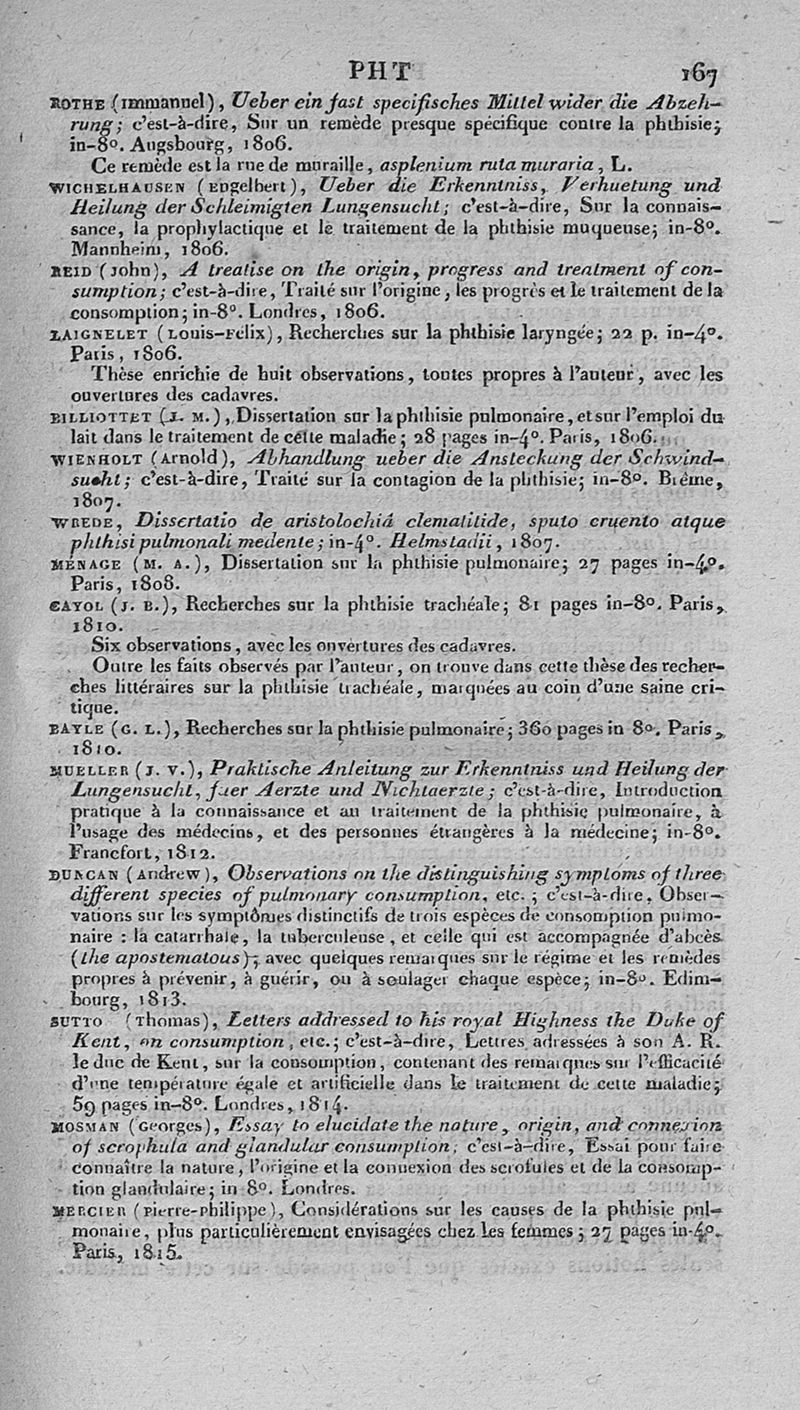 PHT 167
ROTHE (Immanuel), Ueber ein fast specifisches Mittel wider die Abzeh-
rung; c'est-à-dire, Sur un remède presque spécifique contre la phthisie;
in-8°. Augsbourg, 1806.
Ce remède est la rue de muraille, asplenium ruta muraria, L.
WICHELHAUSEN (Engelbert), Ueber die Erkenntniss, Verhuetung und
Heilung der Schleimigten Lungensucht; c'est-à-dire, Sur la connais-
sance, la prophylactique et le traitement de la phthisie muqueuse; in-8°.
Mannheim, 1806.
REID (John), A treatise on the origin, progress and treatment of con-
sumption; c'est-à-dire, Traité sur l'origine, les progrès et le traitement de la
consomption; in-8°. Londres, 1806.
LAIGNELET (Louis-Félix), Recherches sur la phthisie laryngée; 22 p. in-4°.
Paris, 1806.
Thèse enrichie de huit observations, toutes propres à l'auteur, avec les
ouvertures des cadavres.
BILLIOTTET (J. M.), Dissertation sur la phthisie pulmonaire, et sur l'emploi du
lait dans le traitement de cette maladie; 28 pages in-4°. Paris, 1806.
WIENHOLT (Arnold), Abhandlung ueber die Ansteckung der Schwind-
sucht; c'est-à-dire, Traité sur la contagion de la phthisie; in-8°. Brême,
1807.
WREDE, Dissertatio de aristolochiâ clematitide, sputo cruento atque
phthisi pulmonali medente; in-4°. Helmstadii, 1807.
MÉNAGE (M. A.), Dissertation sur la phthisie pulmonaire; 27 pages in-4°.
Paris, 1808.
CAYOL (J. B.), Recherches sur la phthisie trachéale; 81 pages in-8°. Paris,
1810.
Six observations, avec les ouvertures des cadavres.
Outre les faits observés par l'auteur, on trouve dans cette thèse des recher-
ches littéraires sur la phthisie trachéale, marquées au coin d'une saine cri-
tique.
BAYLE (G. L.), Recherches sur la phthisie pulmonaire; 360 pages in 8°. Paris,
1810.
MUELLER (J. V.), Praktische Anleitung zur Erkenntniss und Heilung der
Lungensucht, fuer Aerzte und Nichtaerzte; c'est-à-dire, Introduction
pratique à la connaissance et au traitement de la phthisie pulmonaire, à
l'usage des médecins, et des personnes étrangères à la médecine; in-8°.
Francfort, 1812.
DUNCAN (Andrew), Observations on the distinguishing symptoms of three
different species of pulmonary consumption, etc.; c'est-à-dire, Obser-
vations sur les symptômes distinctifs de trois espèces de consomption pulmo-
naire : la catarrhale, la tuberculeuse, et celle qui est accompagnée d'abcès
(the apostematous); avec quelques remarques sur le régime et les remèdes
propres à prévenir, à guérir, ou à soulager chaque espèce; in-8°. Edim-
bourg, 1813.
SUTTO (Thomas), Letters addressed to his royal Highness the Duke of
Kent, on consumption, etc.; c'est-à-dire, Lettres adressées à son A. R.
le duc de Kent, sur la consomption, contenant des remarques sur l'efficacité
d'une température égale et artificielle dans le traitement de cette maladie;
59 pages in-8°. Londres, 1814.
MOSMAN (Georges), Essay to elucidate the nature, origin, and connexion
of scrophula and glandular consumption; c'est-à-dire, Essai pour faire
connaître la nature, l'origine et la connexion des scrofules et de la consomp-
tion glandulaire; in 8°. Londres.
MERCIER (Pierre-Philippe), Considérations sur les causes de la phthisie pul-
monaire, plus particulièrement envisagées chez les femmes; 27 pages in-4°.
Paris, 1815.